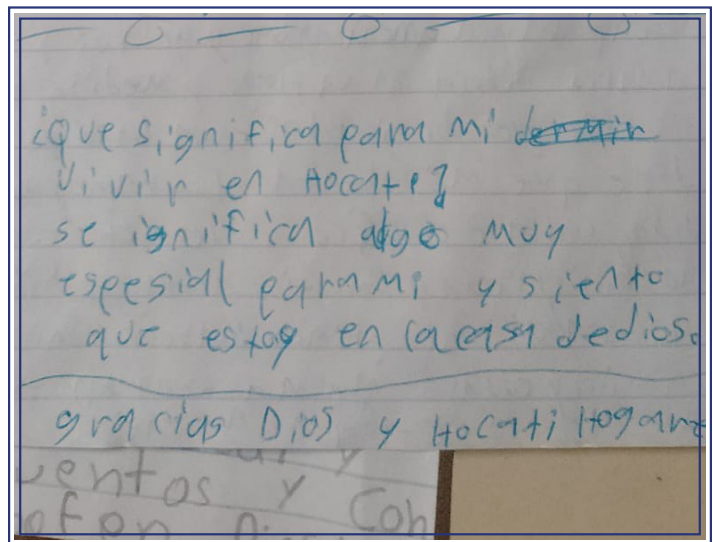 ¿Que significa para mi dermir
vivir en Hocati?
se ignifica algo muy
espesial para mi y siento
que estoy en la casa dedios.
gracias Dios y Hocati Hogar
uentos y Con